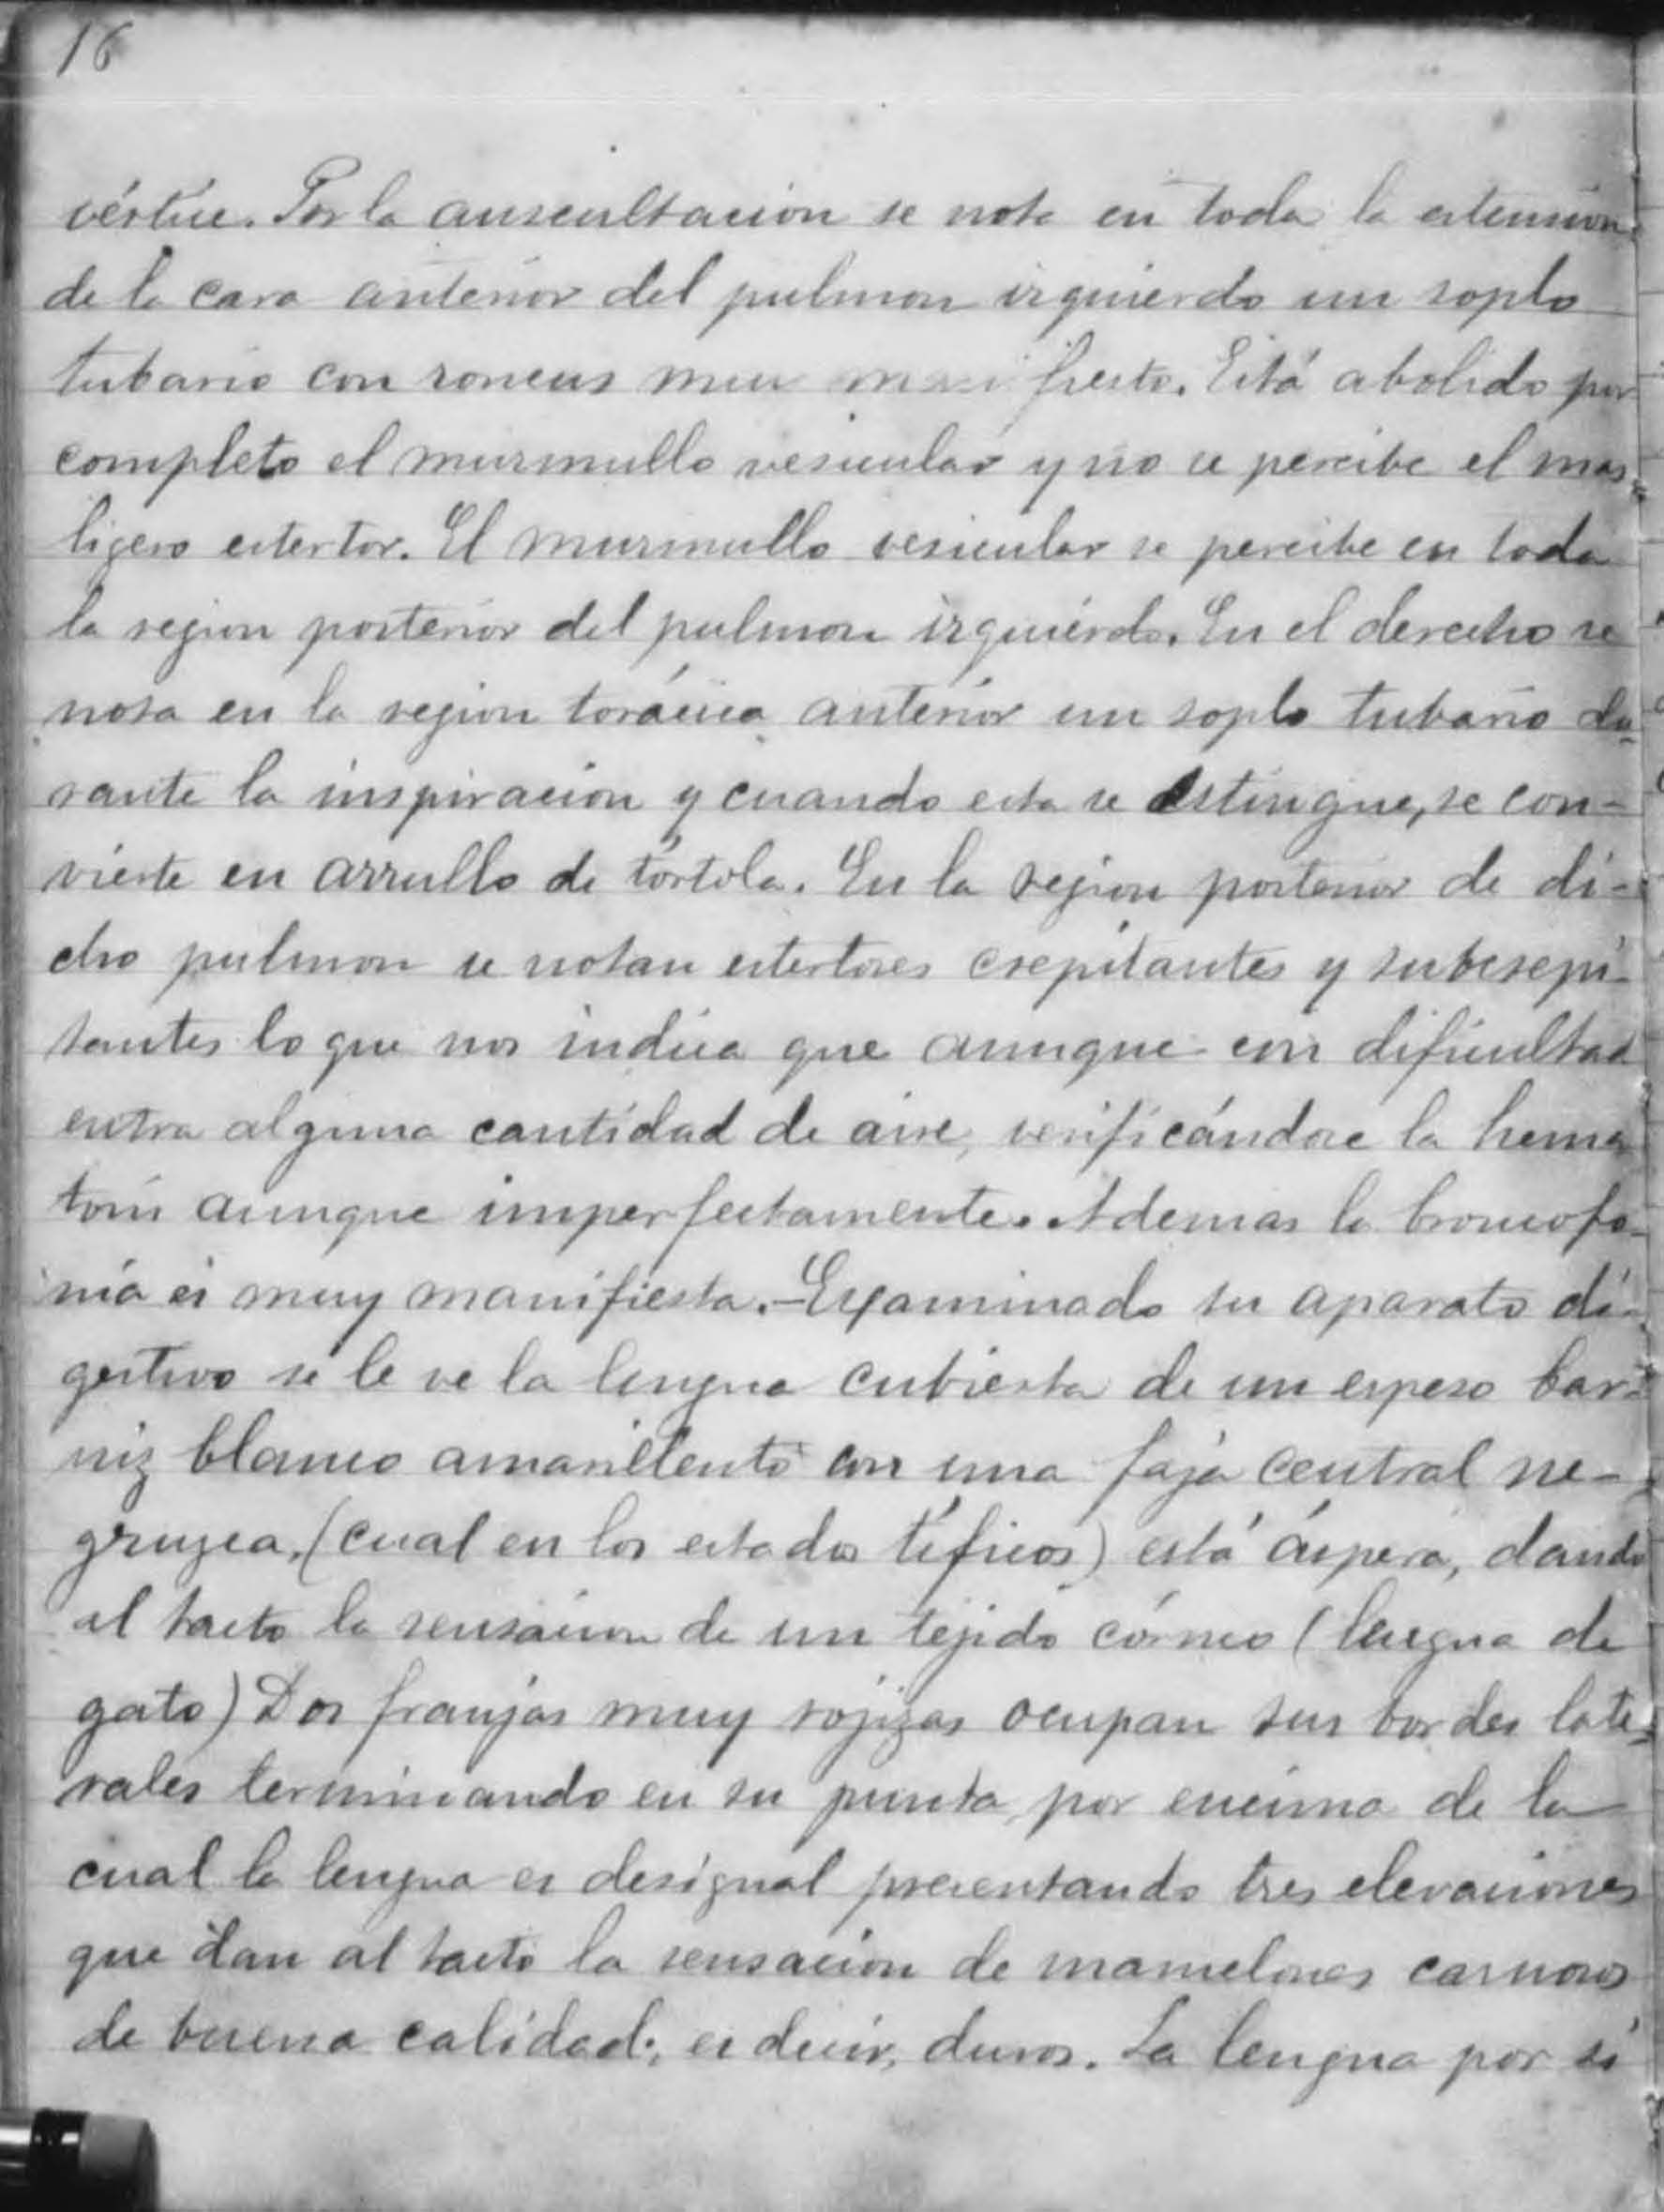 16
vértice. Por la auscultacion se nota en toda la estension
de la cara anterior del pulmon izquierdo un soplo
tubario con roncus muy manifiesto. Está abolido por
completo el murmullo vesicular y no se percibe el mas
ligero estertor. El murmullo vesicular se percibe en toda
la region posterior del pulmon izquierdo. En el derecho se
nota en la region torácica anterior un soplo tubario du-
rante la inspiracion y cuando esta se estingue, se con-
vierte en arrullo de tórtola. En la region posterior de di-
cho pulmon se notan estertores crepitantes y subcrepi-
tantes lo que nos indica que aunque con dificultad
entra alguna cantidad de aire, verificándose la hema
tosis aunque imperfectamente. Ademas la broncofo-
nia es muy manifiesta. - Examinado su aparato di-
gestivo se le ve la lengua cubierta de un espeso bar-
niz blanco amarillento con una faja central ne-
gruzca, (cual en los estados tíficos) está áspera, dando
al tacto la sensacion de un tejido córneo (lengua de
gato) Dos franjas muy rojizas ocupan sus bordes late-
rales terminando en su punta por encima de la
cual la lengua es desigual presentando tres elevaciones
que dan al tacto la sensacion de mamelones carnosos
de buena calidad; es decir, duros. La lengua por si